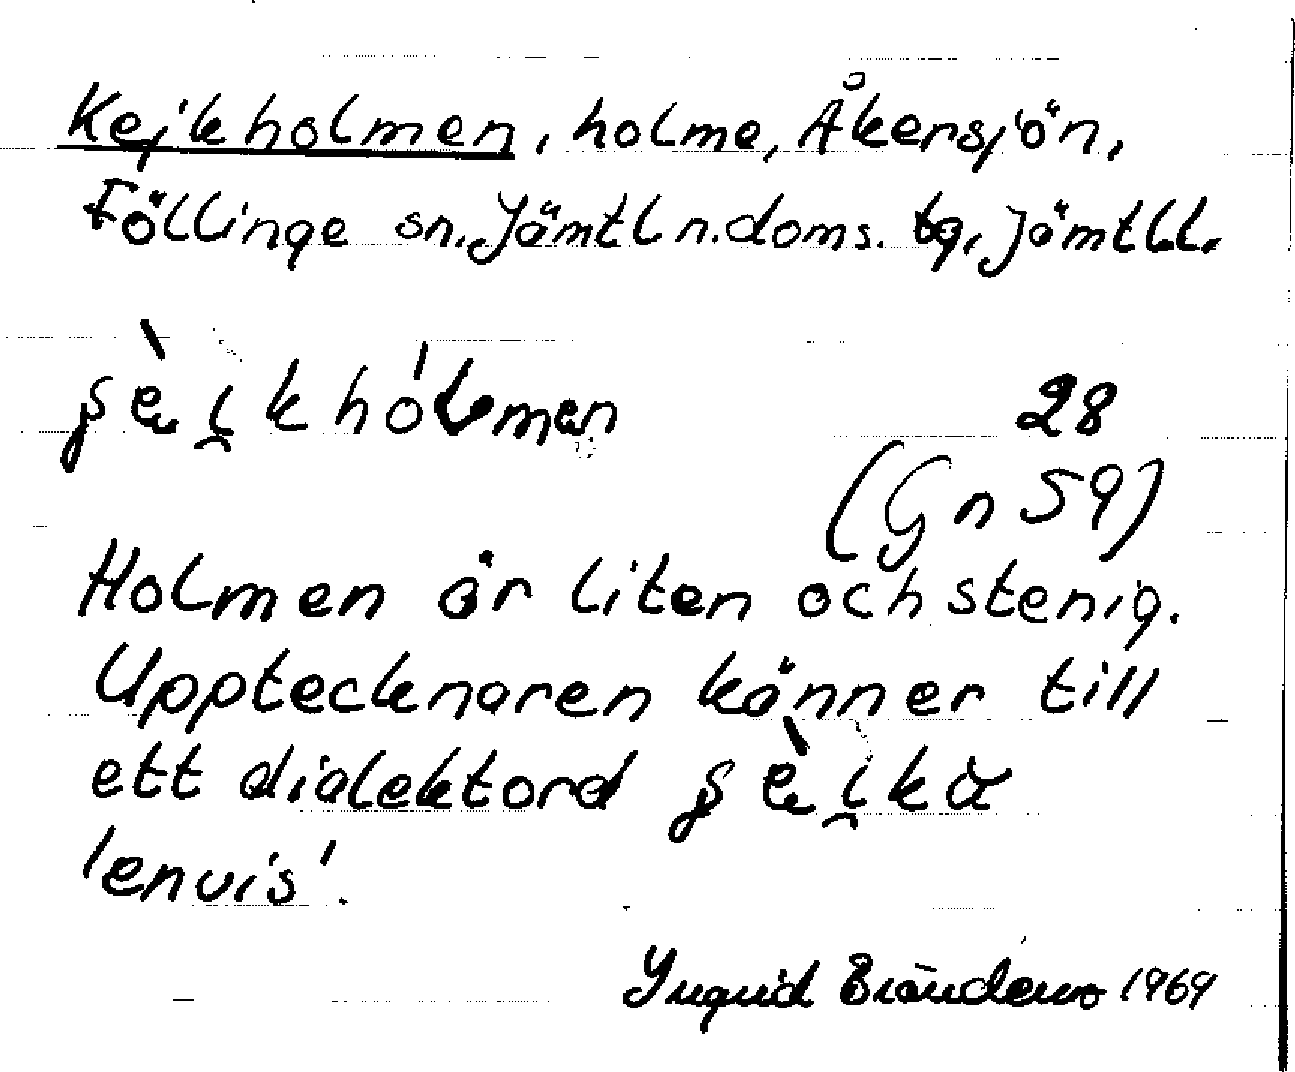 Kejkholmen, holme, Åkersjön,
Föllinge sn. Jämtl n. doms. tg, Jämtl l.
ʂè̢i̯khólmen
28
(Gn 59)
Holmen är liten och stenig.
Upptecknaren känner till
ett dialektord ʂè̢i̯kä
'envis'.
Ingrid 1969